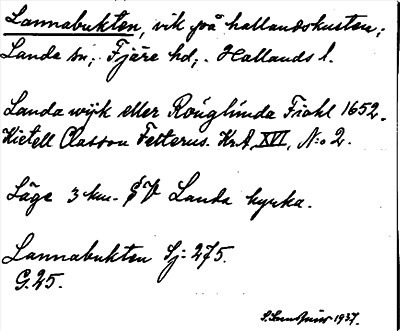 Lannabukten, vik på hallandskusten;
Landa sn; Fjäre hd; Hallands l.
Landa wijk eller Röuglinda Fiohl 1652.
Kietell Classon Felterus. Kr.A. XVI, N:o 2.
Läge 3 km. SV Landa kyrka.
Lannabukten Sj: 275.
G. 25.
1937.